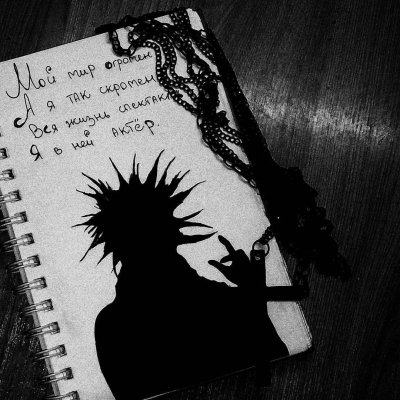 Мой мир огромен
А я так скромен
Вся жизнь спектакль
Я в ней актёр.